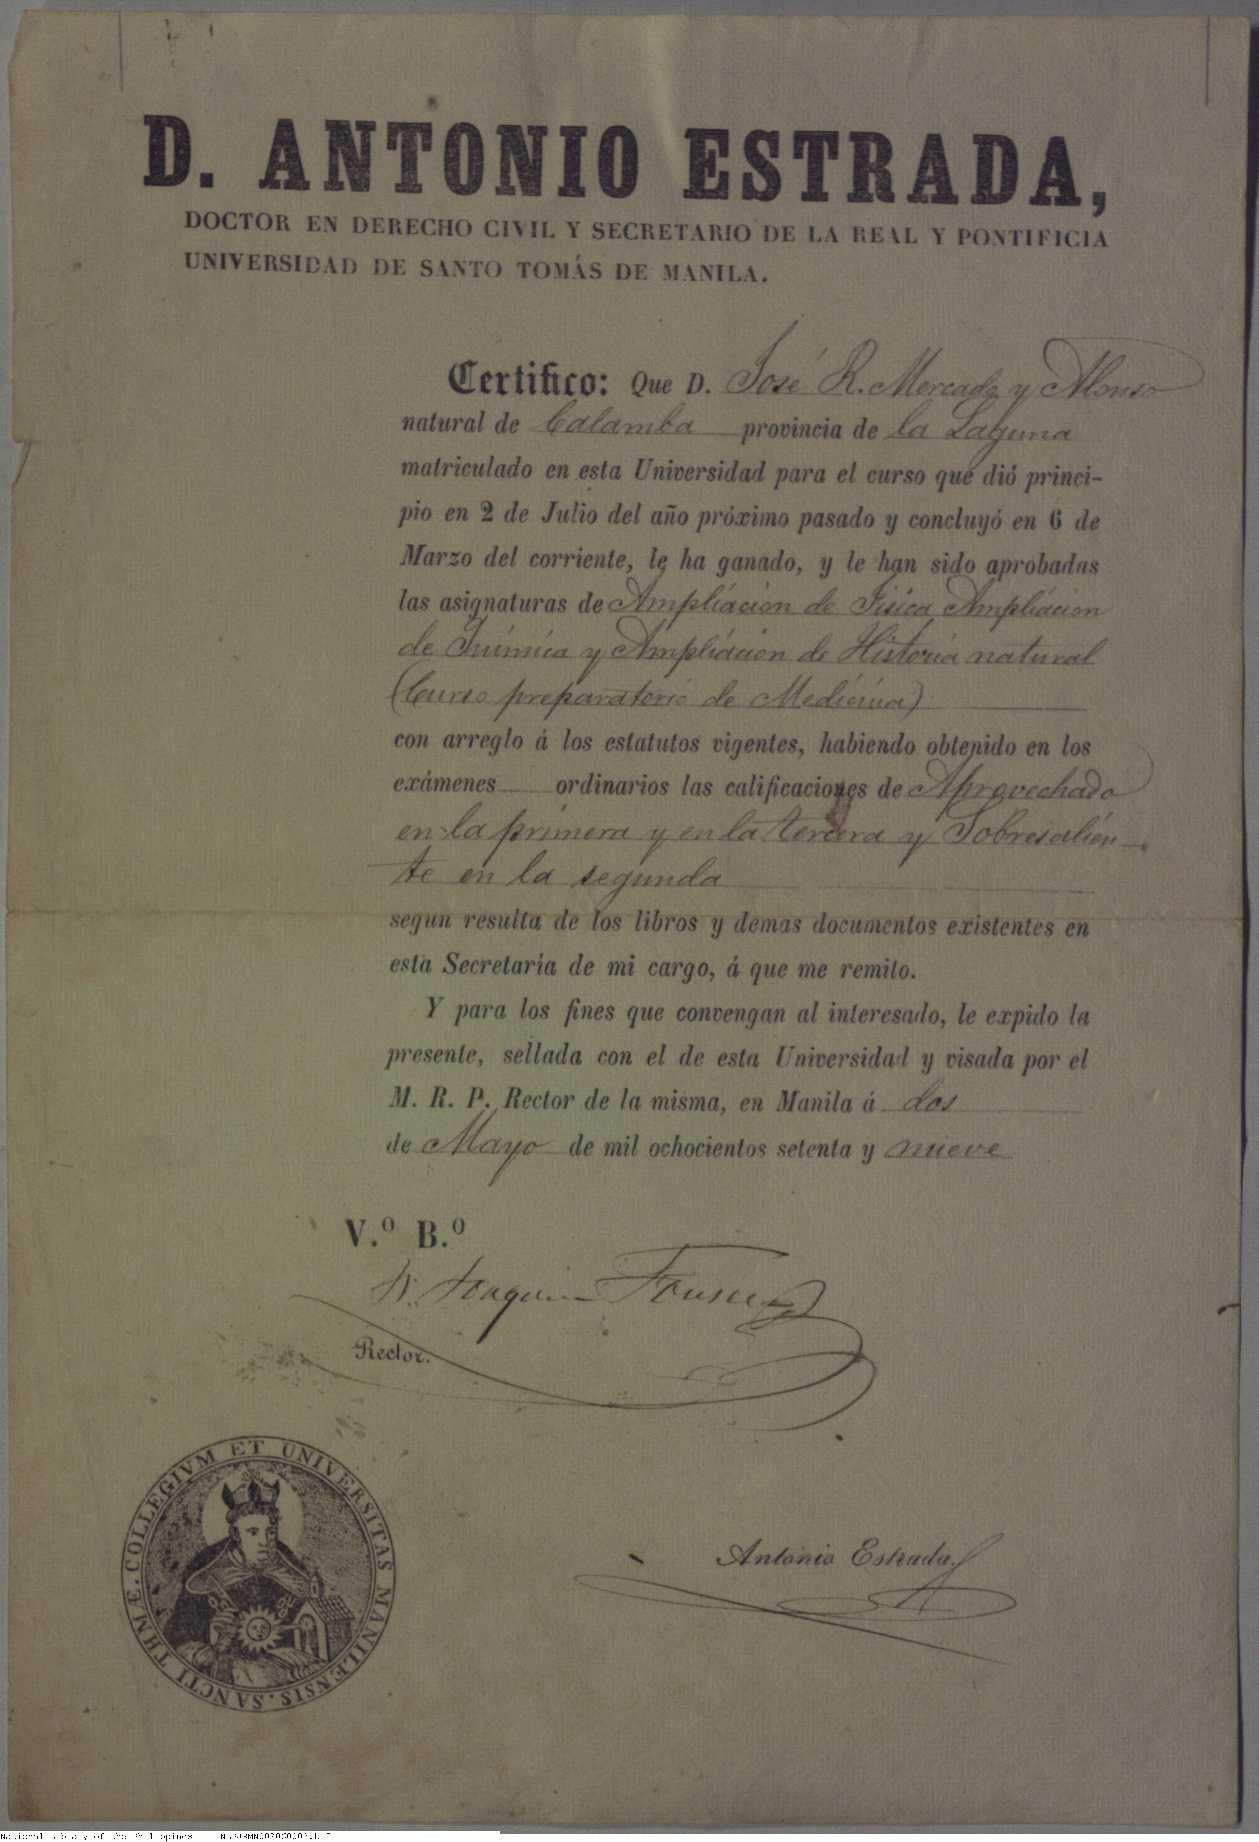 D. ANTONIO ESTRADA,
DOCTOR EN DERECHO CIVIL Y SECRETARIO DE LA REAL Y PONTIFICIA
UNIVERSIDAD DE SANTO TOMÁS DE MANILA.
Certifico: Que D. José R. Mercado y Alonso
natural de Calamba provincia de la Laguna
matriculado en esta Universidad para el curso que dió princi-
pio en 2 de Julio del año próximo pasado y concluyó en 6 de
Marzo del corriente, le ha ganado, y le han sido aprobadas
las asignaturas de Ampliacion de Fisica Ampliacion
de Quimica y Ampliacion de Historia natural
(Curso preparatorio de Medicina)
con arreglo á los estatutos vigentes, habiendo obtenido en los
exámenes ordinarios las calificaciones de Aprovechado
en la primera y en la tercera y Sobresalien-
te en la segunda
segun resulta de los libros y demas documentos existentes en
esta Secretaría de mi cargo, á que me remito.
Y para los fines que convengan al interesado, le expido la
presente, sellada con el de esta Universidad y visada por el
M. R. P. Rector de la misma, en Manila á dos
de Mayo de mil ochocientos setenta y nueve
V.º B.º
Joaquin
Rector.
COLLEGIVM ET UNIVERSITAS MANILENSIS. SANCTI THMÆ.
Antonio Estrada.
National Library of the Philippines